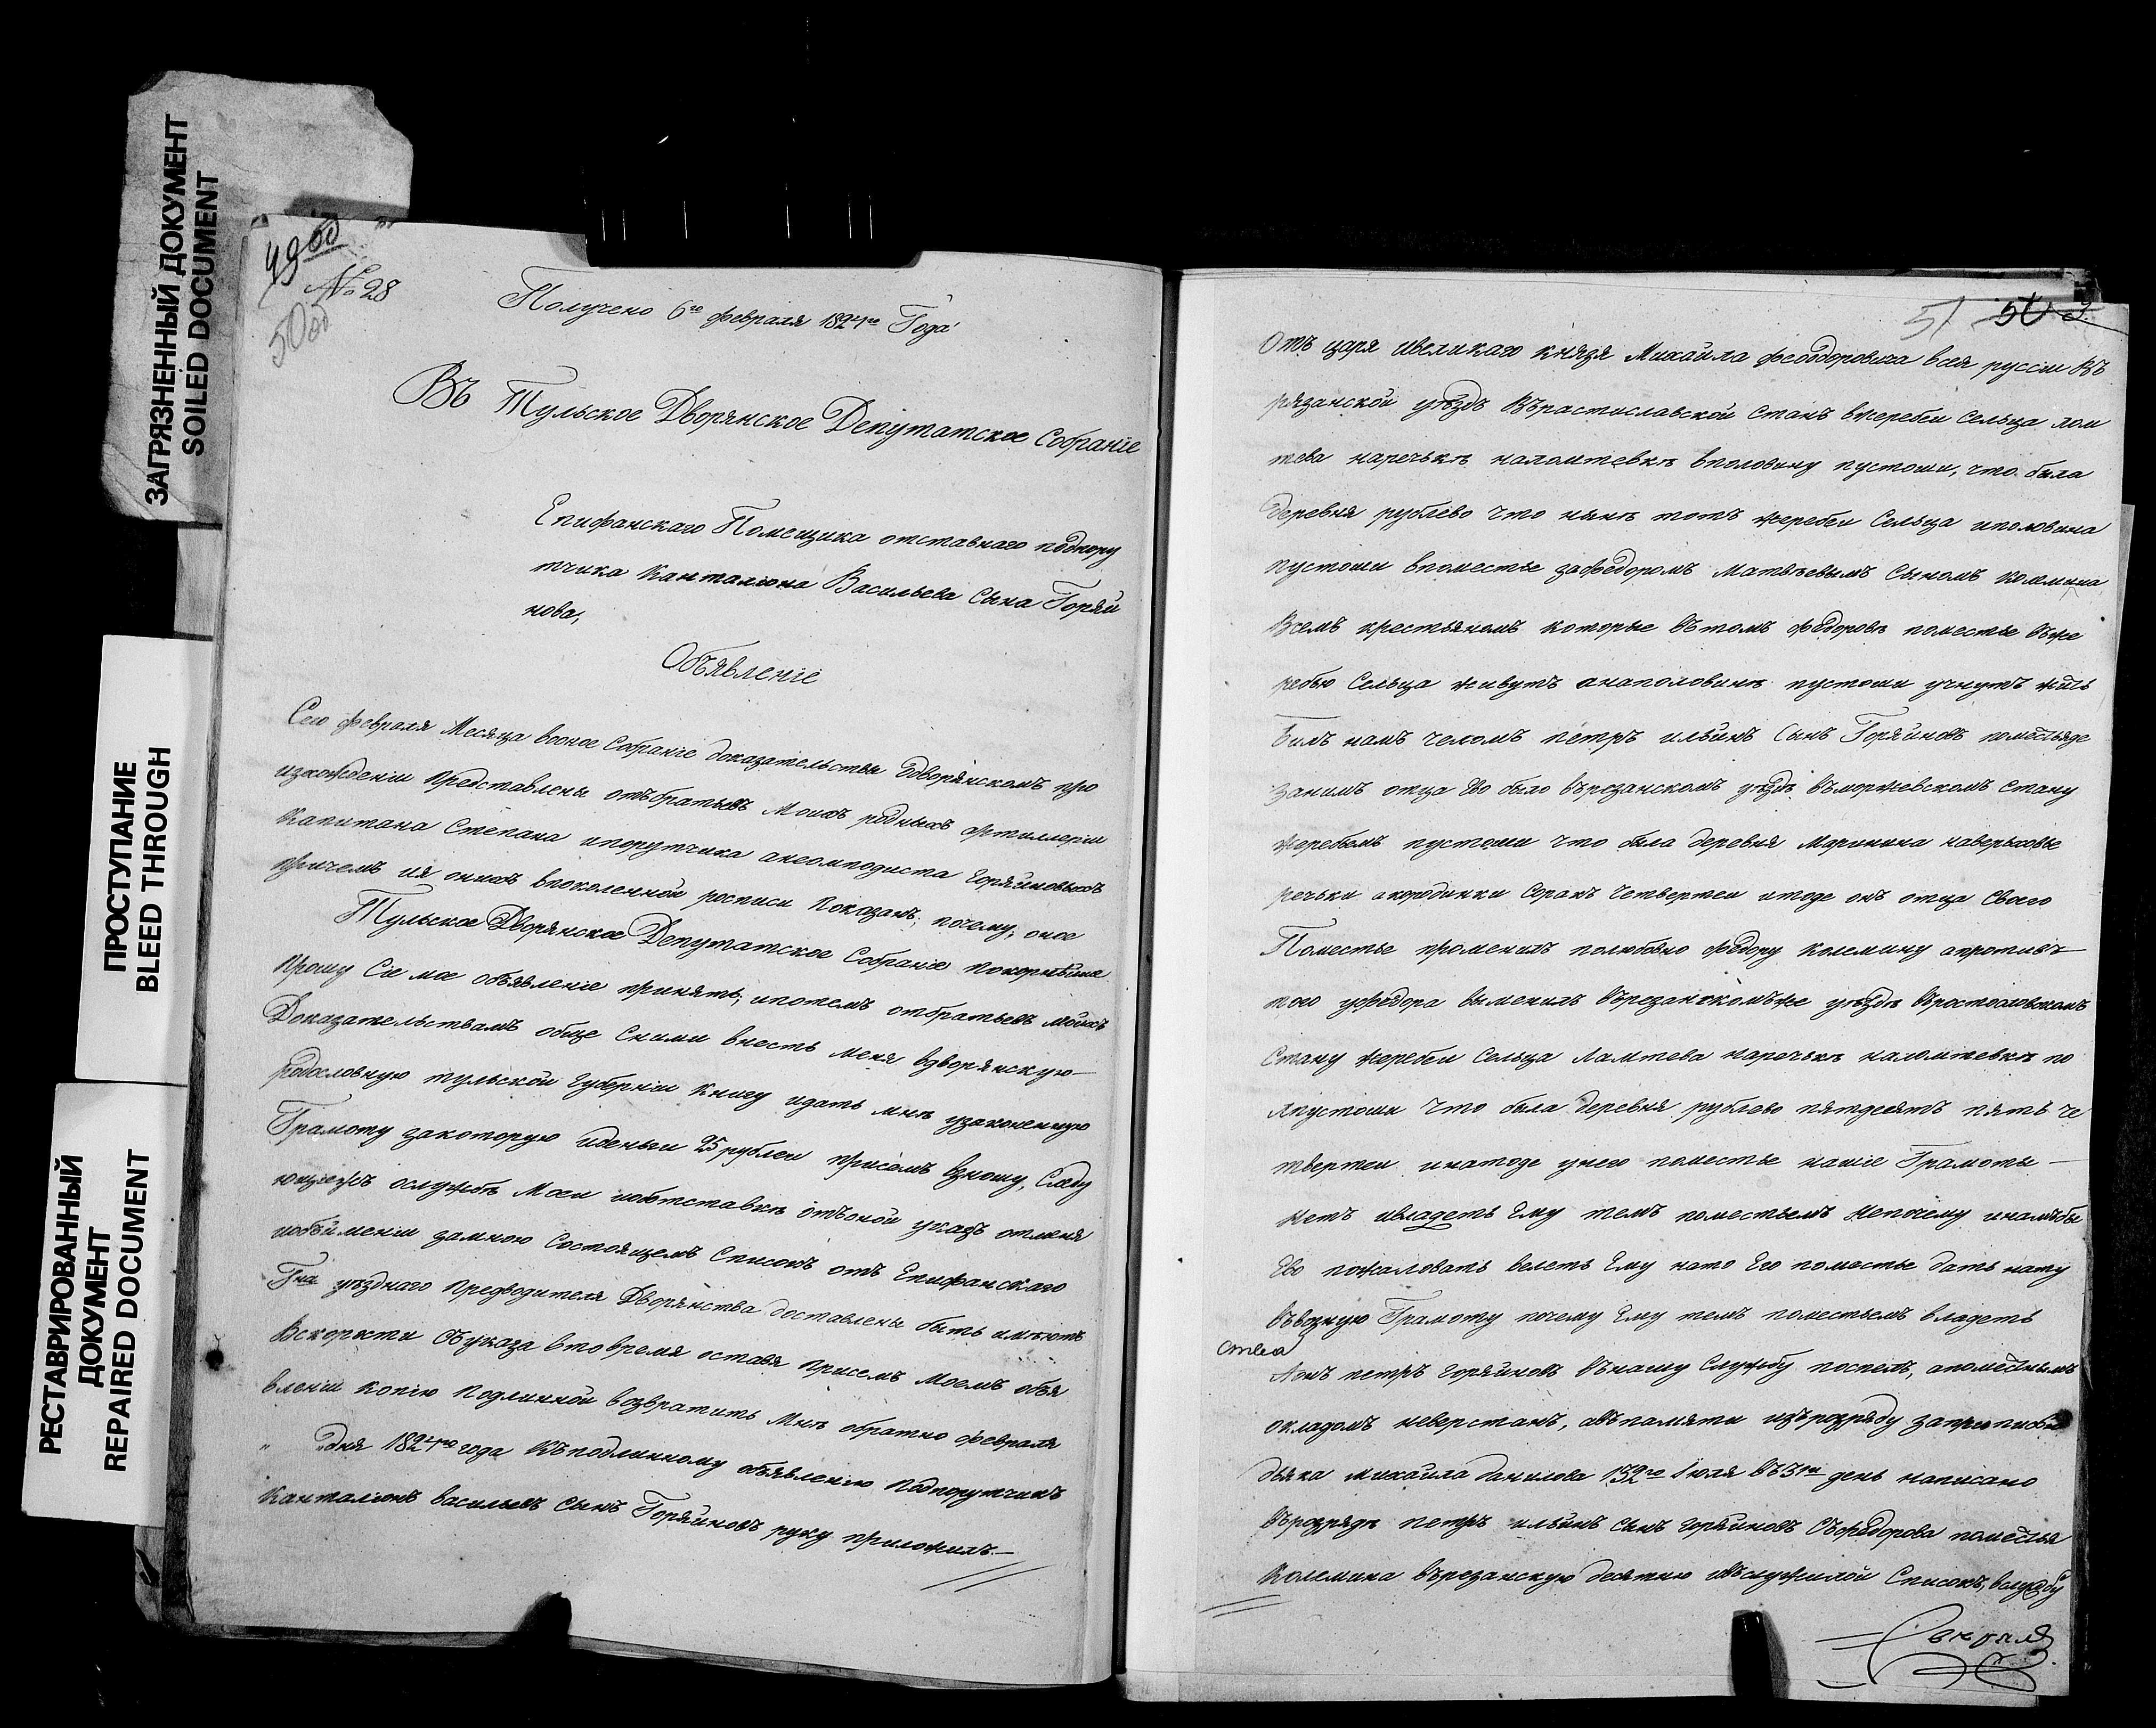 ЗАГРЯЗНЕННЫЙ ДОКУМЕНТ
SOILED DOCUMENT
ПРОСТУПАНИЕ
BLEED THROUGH
РЕСТАВРИРОВАННЫЙ
ДОКУМЕНТ
REPAIRED DOCUMENT
49
№ 28
50об
Получено 6го февраля 1824го Года
Въ Тульское Дворянское Депутатское Собраніе
Епифанскаго Помещика отставнаго подпору
тчика Канталиона Васильева Сына Горяй
нова,
Объявленіе
Сего февраля Месяца воное Собраніе доказательствы одворянскомъ про
изхожденіи представлены отъ братьевъ Моихъ родныхъ артиллеріи
Капитана Степана ипорутчика анеомподиста Горяйновыхъ
причемъ ия онихъ впоколенной росписи Показанъ, почему, оное
Тульское Дворянское Депутатское Собраніе покорнейше
прошу Сіе мое объявленіе принять, ипотемъ отбратьевъ мойхъ
Доказательствамъ обще Сними внесть меня вдворянскую
родословную тульской Губерніи Книгу идать мнѣ узаконенную
Грамоту закоторую иденьги 25 рублеи присемъ взношу, Следу
ющіежъ ослужбѣ Моеи иоботставкѣ отъоной указъ отменя
иобъйменіи замною Состоящемъ Списокъ отъ Епифанскаго
Гна уѣзднаго Предводителя Дворянства доставлены быть имѣютъ
Вскорости Съуказа втовремя оставя присемъ Моемъ объя
вленіи копію Подлинной возвратить Мнѣ обратно февраля
" дня 1824го года Къподлинному объявленію Подпорутчикъ
Канталіонъ васильевъ сынъ Горяйновъ руку приложилъ
51 50
Отъ царя ивеликаго князя Михаила феодоровича всея руссіи Въ
рязанской уѣздъ Върастиславской Станъ вжеребеи Сельца лом
тева наречькѣ наломтевкѣ вполовину пустоши, что была
деревня рублево что нынѣ тотъ жеребеи Сельца иполовина
пустоши впоместье зафедоромъ Матвѣевымъ Сыномъ Колемина
Всемъ крестьяномъ которые вътомъ федоровѣ поместье въже
ребью Сельца живутъ анаполовинѣ пустоши учнутъ жить
Билъ намъ челомъ петръ ильинъ Сынъ Горяйновъ поместьяде
занимъ отца Ево было върезанскомъ уѣздѣ въморжевскомъ Стану
жеребьемъ пустоши что была деревня Маринина наверьховье
речьки акородинки Соракъ Четвертеи итоде онъ отца Своего
Поместье променилъ полюбовно федору Колемину апротивъ
того уфедора выменилъ върезанскомъже уѣздѣ въростословскомъ
Стану жеребеи Сельца Ламтева наречькѣ наломтевкѣ по
лпустоши что была деревня рублево пятдесятъ пять че
твертеи инатоде унего поместье нашіе Грамоты
нетъ ивладеть Ему темъ поместьемъ непочему инамъбы
Ево пожаловать велеть Ему нато Его поместье дать нашу
въвозную Грамоту почему Ему темъ поместьемъ владеть
Аонъ петръ горяйновъ внашу Службу поспелъ, апоместнымъ
окладомъ неверстанъ, авъпамяти изъразряду заприписью
дьяка михаила данилова 132го Іюля въ31й день написано
въразрядѣ петръ ильинъ сынъ горяйновъ Съфедорова поместья
Колемина върезанскую десятню ивъслужилой Списокъ, вслужбу
Скрепля